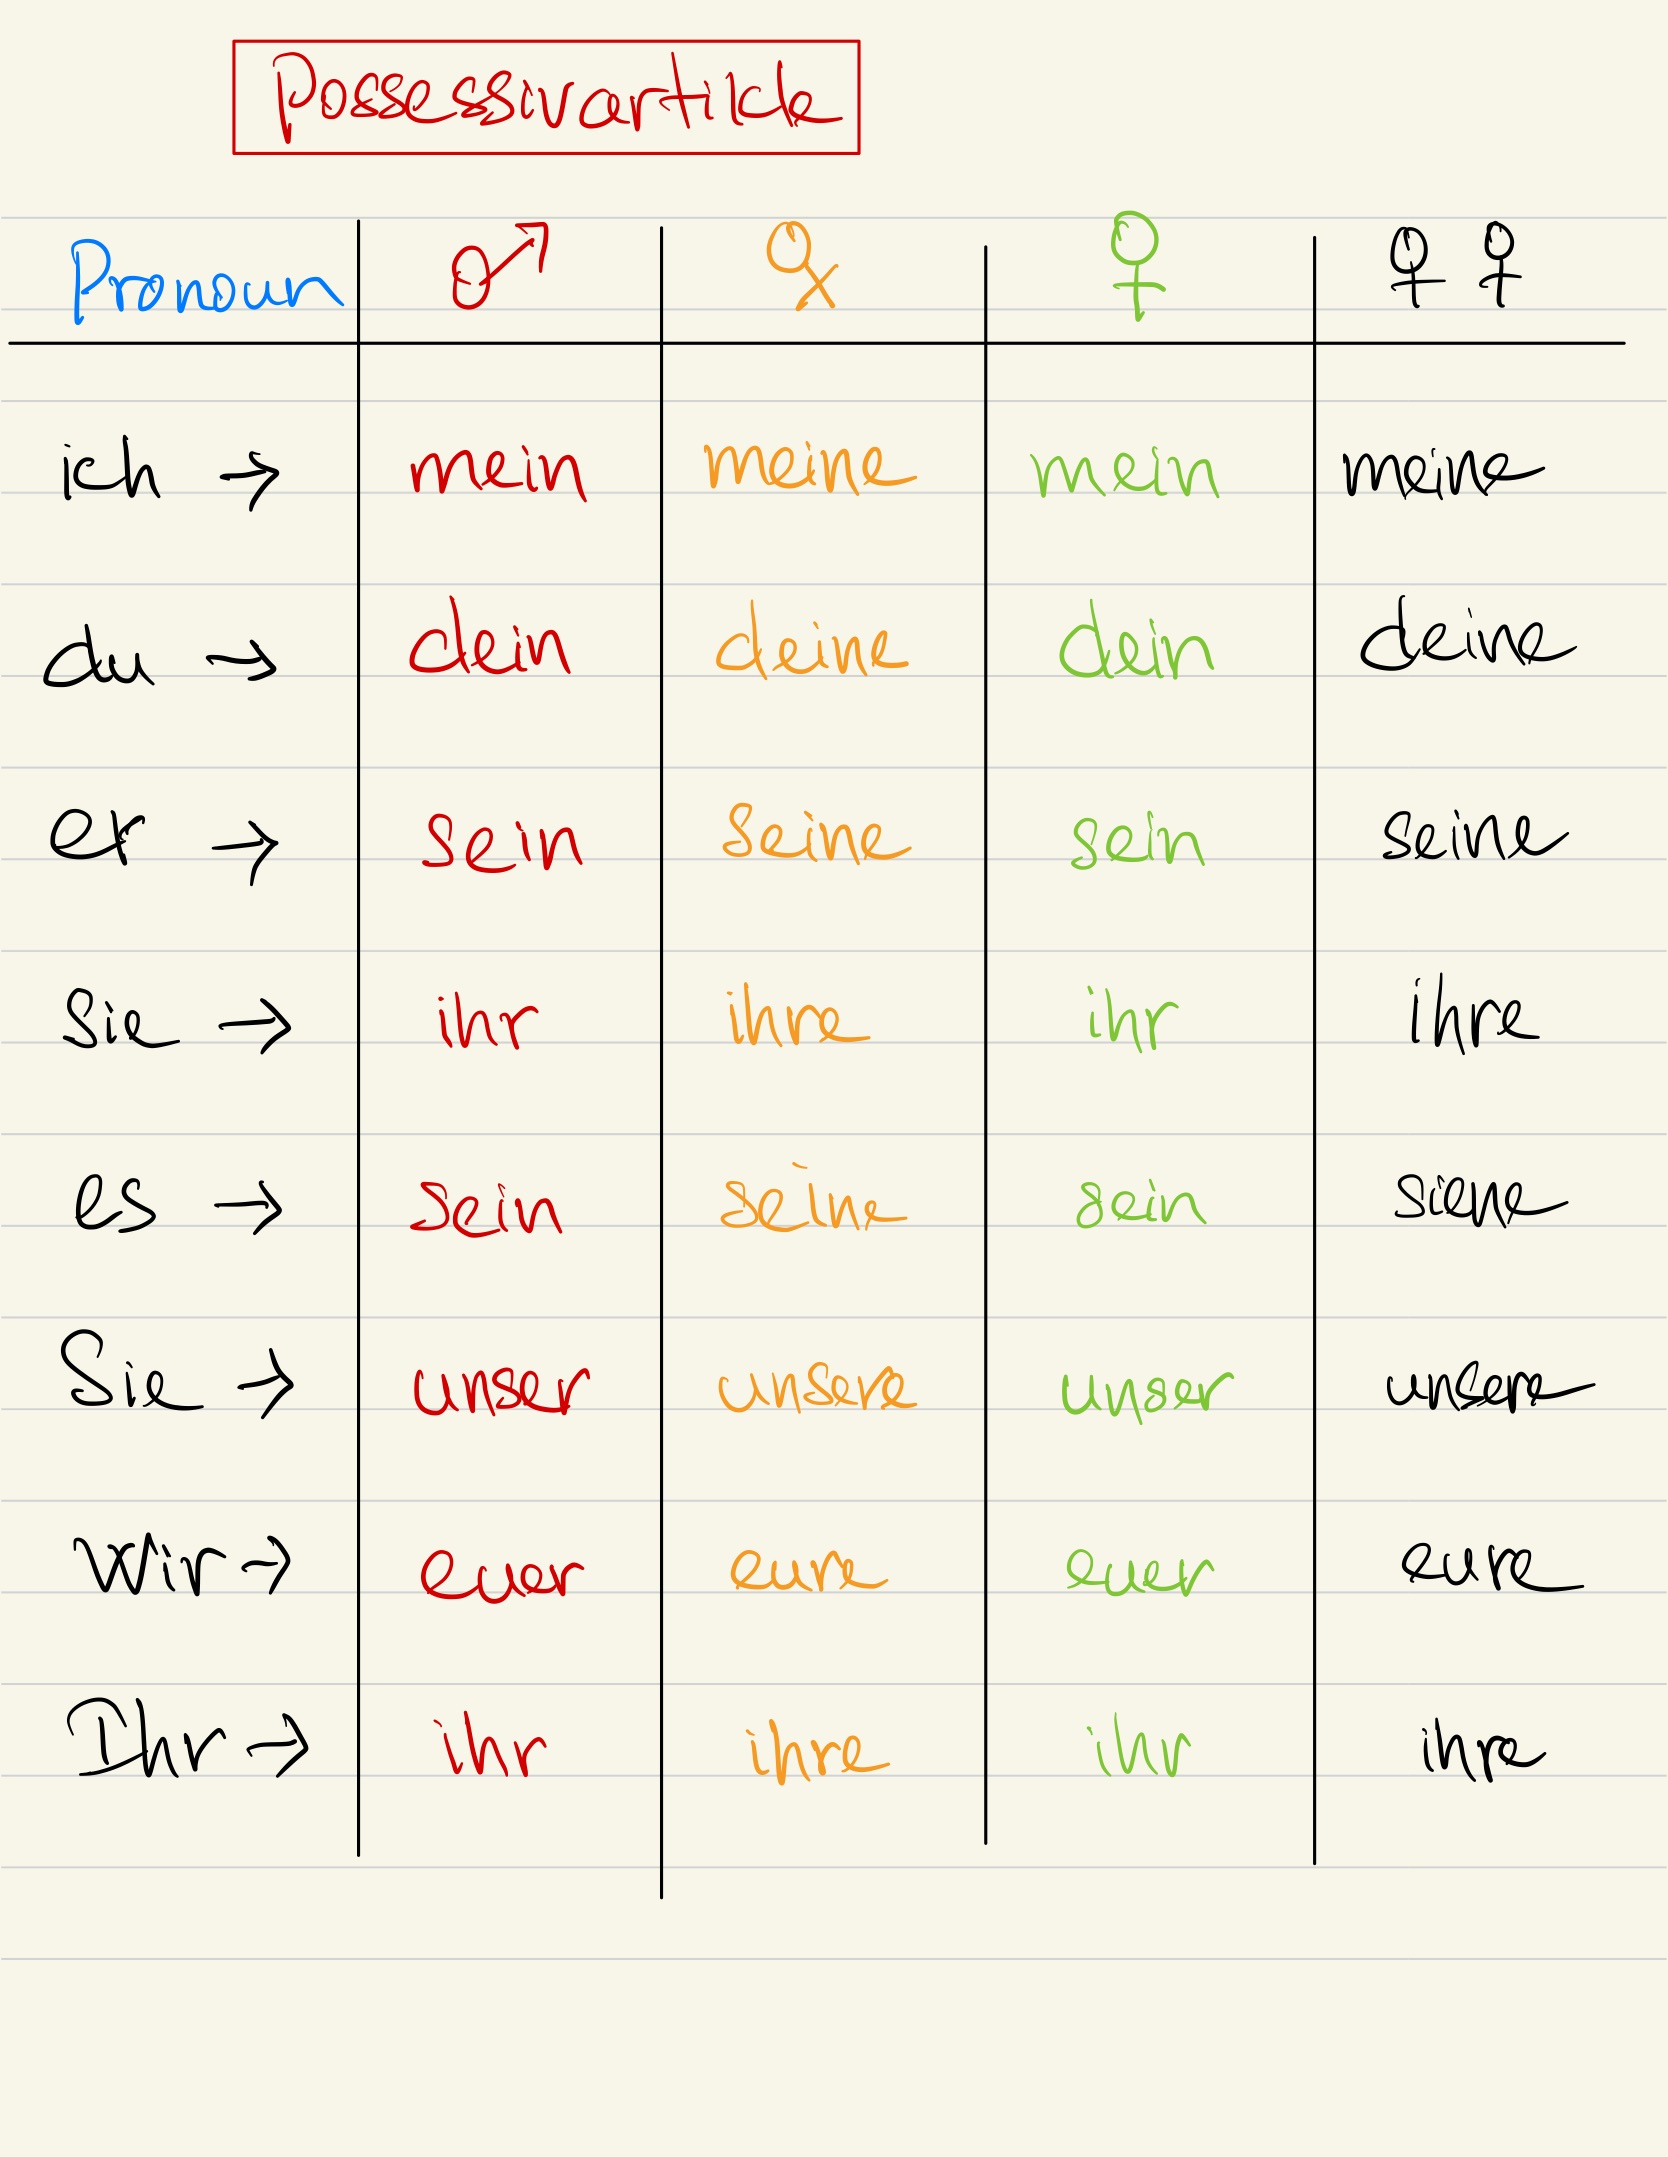 Possessivartikle
Pronoun ♂ ♀ ♀ ♀ ♀
ich → mein meine mein meine
du → dein deine dein deine
er → sein seine sein seine
Sie → ihr ihre ihr ihre
es → sein seine sein siene
Sie → unser unsere unser unsere
Wir → euer eure euer eure
Ihr → ihr ihre ihr ihre